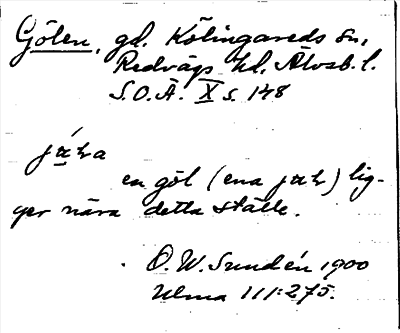 Gölen, gd. Kölingareds sn,
Redvägs hd, Älvsb. l.
S.O.Ä. X s. 148
en göl (ena ) lig-
ger nära detta ställe.
D. W. Sundén 1900
Ulma 111:275.